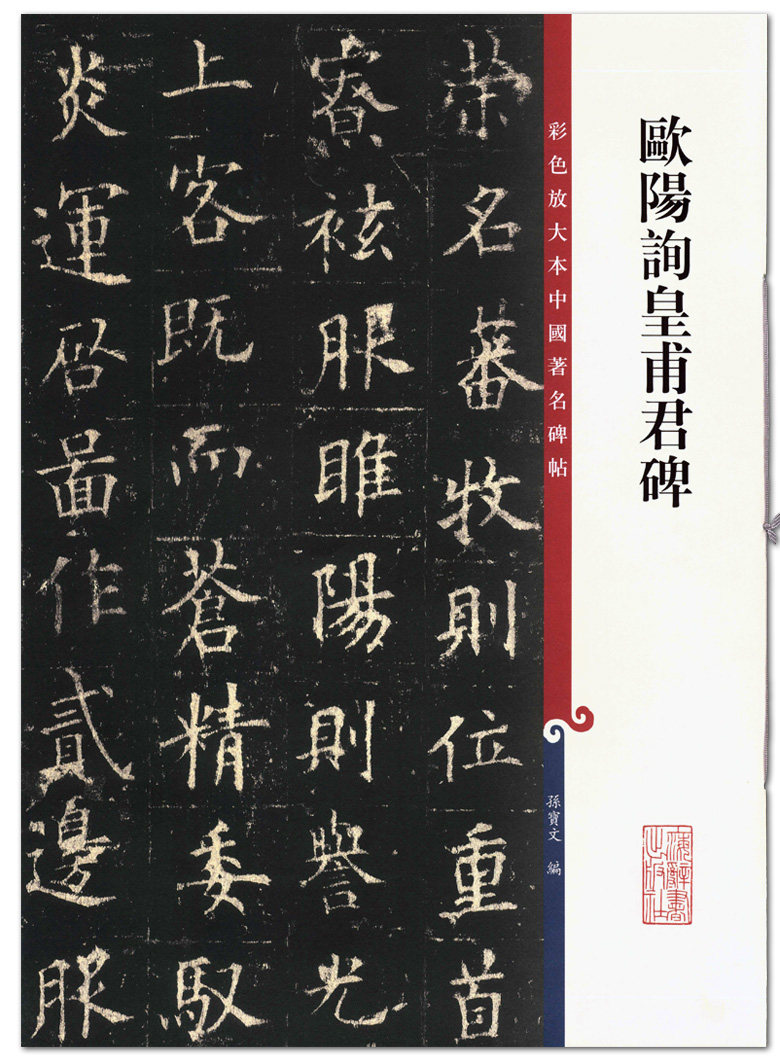 歐陽詢皇甫君碑
彩色放大本中國著名碑帖
孫寶文 編
上海辭書出版社
榮名蕃牧則位重首
寮袨服睢陽則譽光
上客既而蒼精委馭
炎運启啚作貳邊服